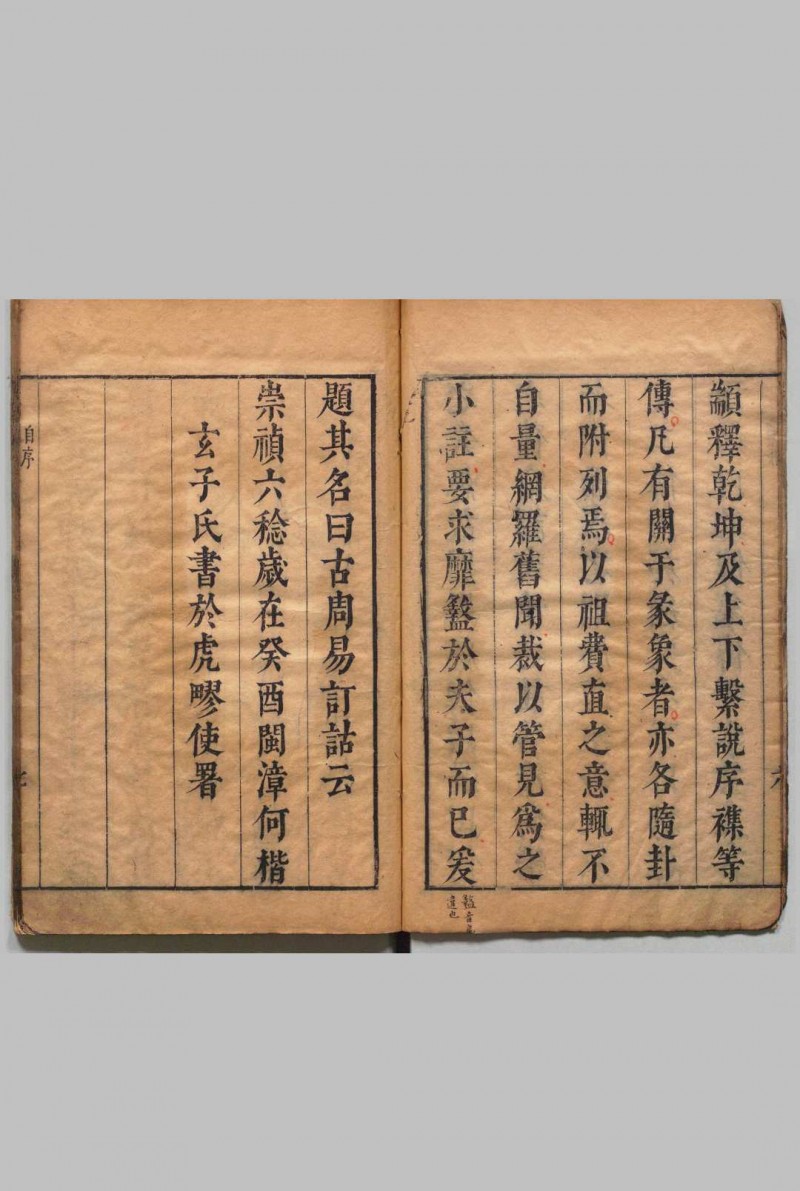 顓釋乾坤及上下繫說序襍等
傳凡有關于彖象者亦各隨卦
而附列焉以祖費直之意輒不
自量網羅舊聞裁以管見爲之
小註要求靡盭於夫子而已爰
題其名曰古周易訂詁云
崇禎六稔歲在癸酉閩漳何楷
玄子氏書於虎疁使署
自序